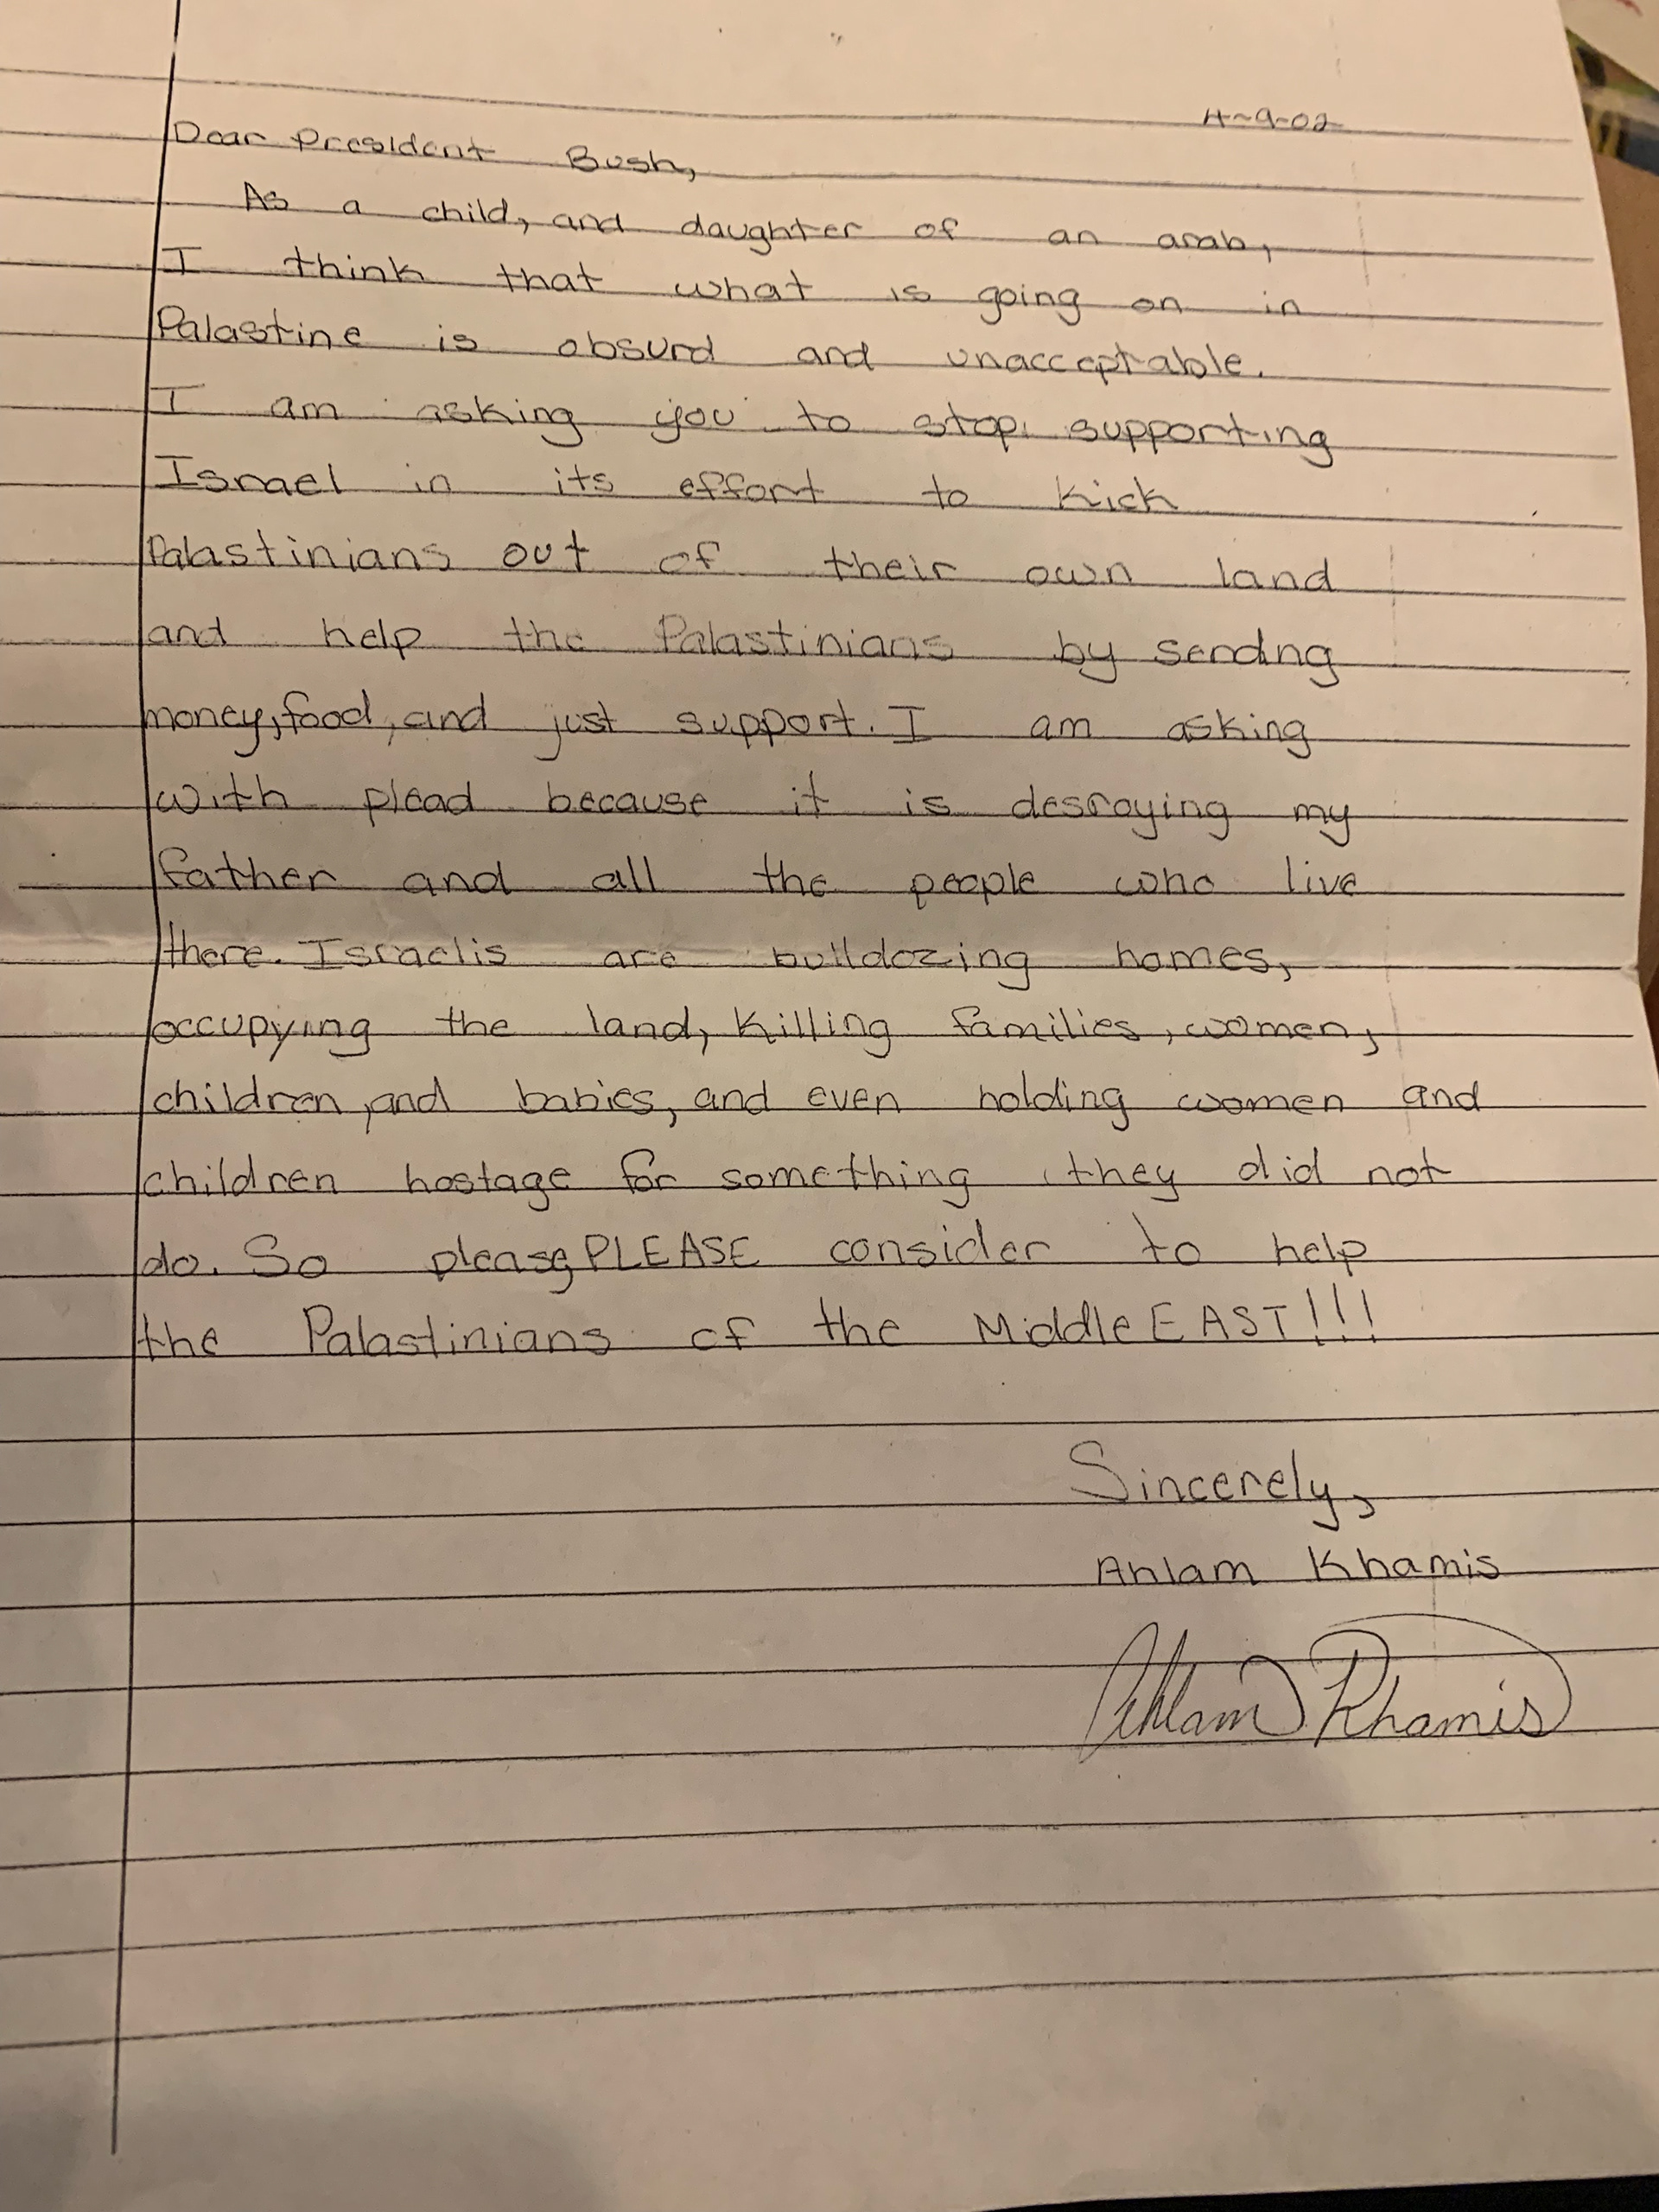 4-9-02
Dear President Bush,
As a child, and daughter of an arab,
I think that what is going on in
Palastine is absurd and unacceptable.
I am asking you to stop supporting
Israel in its effort to kick
Palastinians out of their own land
and help the Palastinians by sending
money, food, and just support. I am asking
with plead because it is desroying my
father and all the people who live
there. Israelis are bulldozing homes,
occupying the land, killing families, women,
children, and babies, and even holding women and
children hostage for something they did not
do. So please, PLEASE consider to help
the Palastinians of the Middle EAST!!!
Sincerely,
Ahlam Khamis
Ahlam Khamis